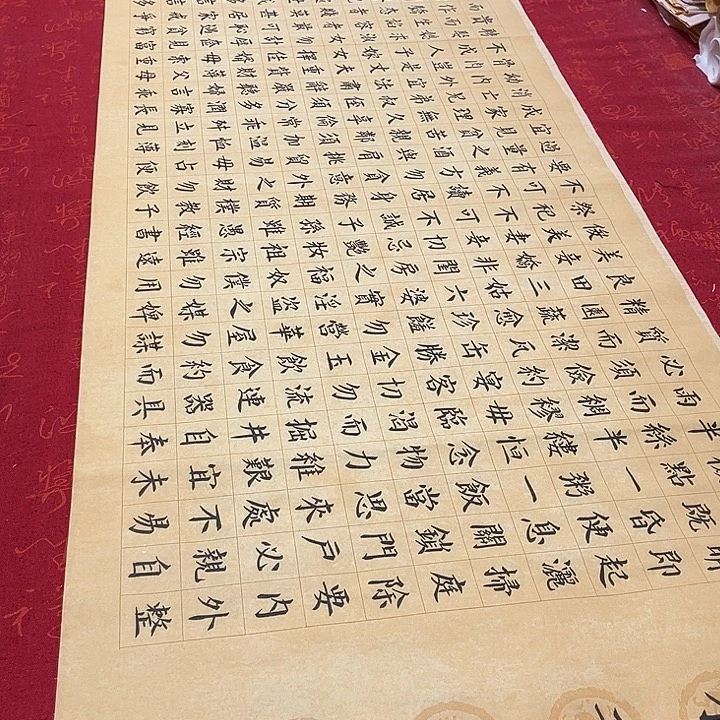 明即起灑掃庭除要內外整
既昏便息關鎖門戶必親自
點一粥一飯當思來處不易
半絲半縷恒念物力維艱宜未
雨而綢繆毋臨渴而掘井自奉
必須儉約宴客切勿流連器具
質而潔瓦缶勝金玉飲食約而
精園蔬愈珍饈勿營華屋勿謀
良田三姑六婆實淫盜之媒婢
美妾嬌非閨房之福奴僕勿用
俊美妻妾切忌艷妝祖宗雖遠
祭祀不可不誠子孫雖愚經書
不可不讀居身務期質樸教子
要有義方勿貪意外之財勿飲
過量之酒與肩挑貿易毋占便
宜見貧苦親鄰須加溫恤刻薄
成家理無久享倫常乖舛立見
消亡兄弟叔侄須分多潤寡長
幼內外宜法肅辭嚴聽婦言乖
骨肉豈是丈夫重資財薄父母
不成人子嫁女擇佳婿毋索重
聘娶媳求淑女勿計厚奩見富
貴而生諂容者最可恥遇貧窮
而作驕態者賤莫甚居家戒爭